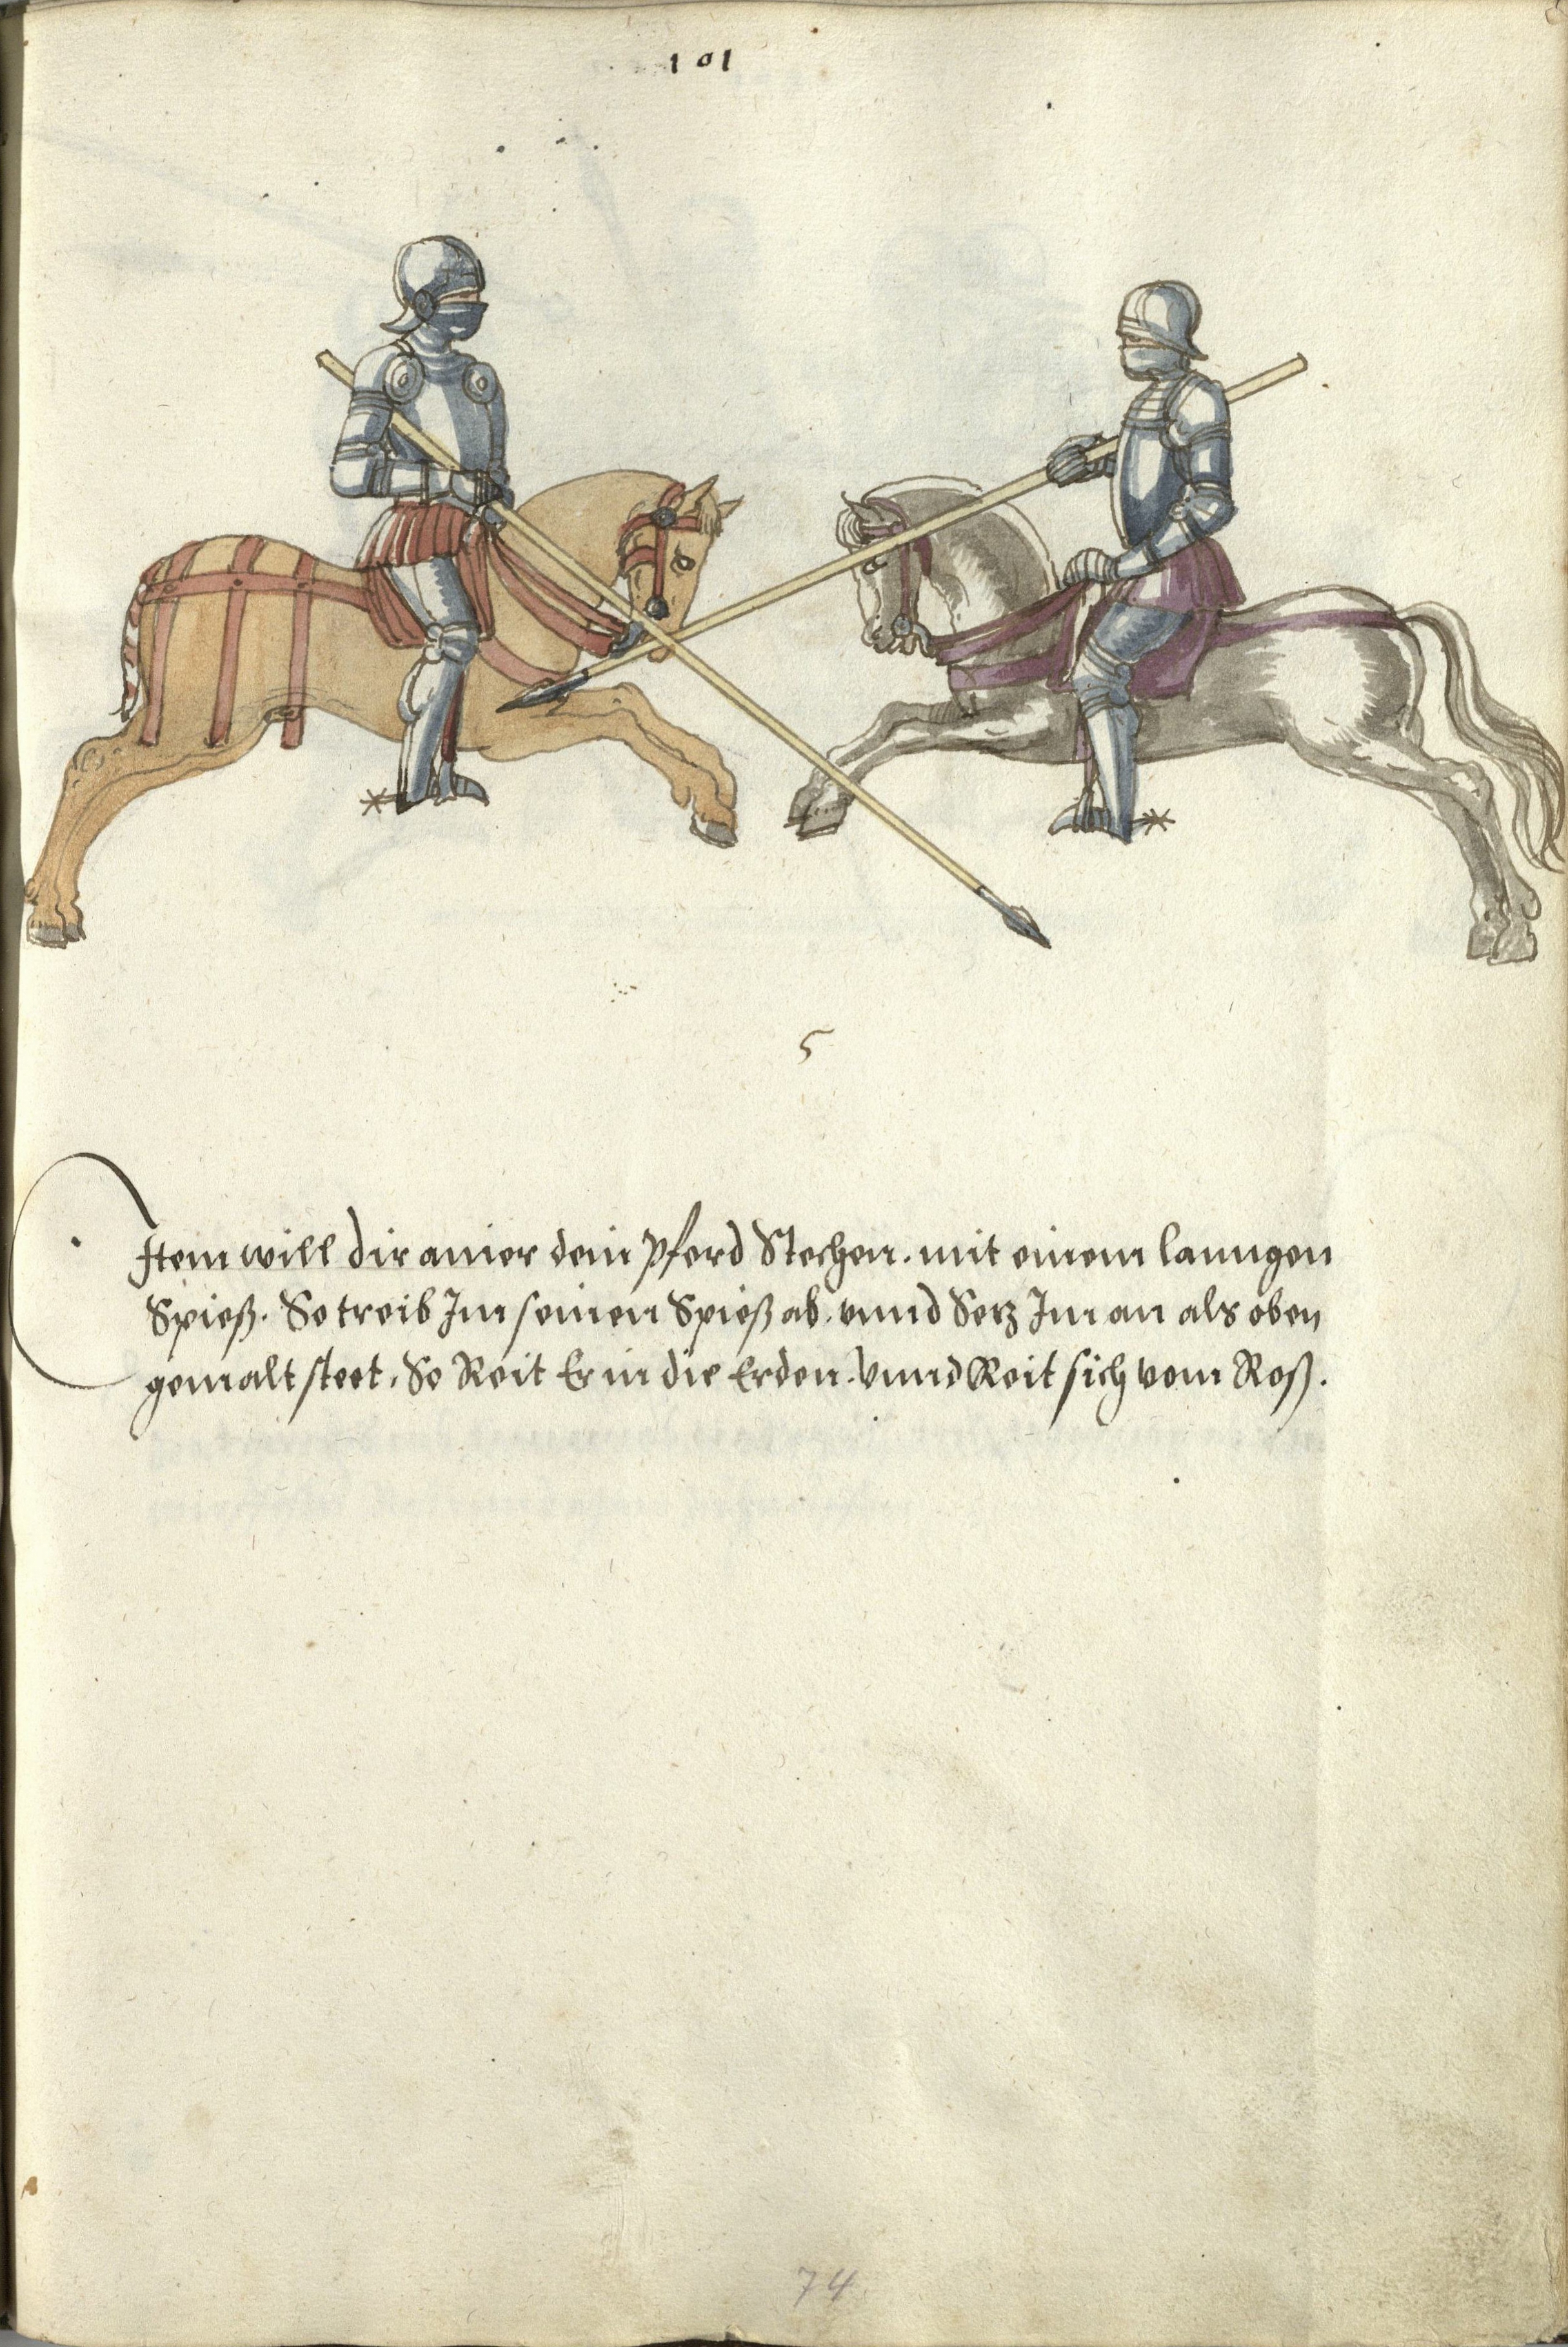 101
5
Item will dir ainer dein pferd Stechen. mit einem lanngen
Spieß. So treib Im seinen Spieß ab. vnnd Setz Im an als oben
gemalt steet. So Reit Er in die Erden. Vnnd Reit sich vom Roß.
74